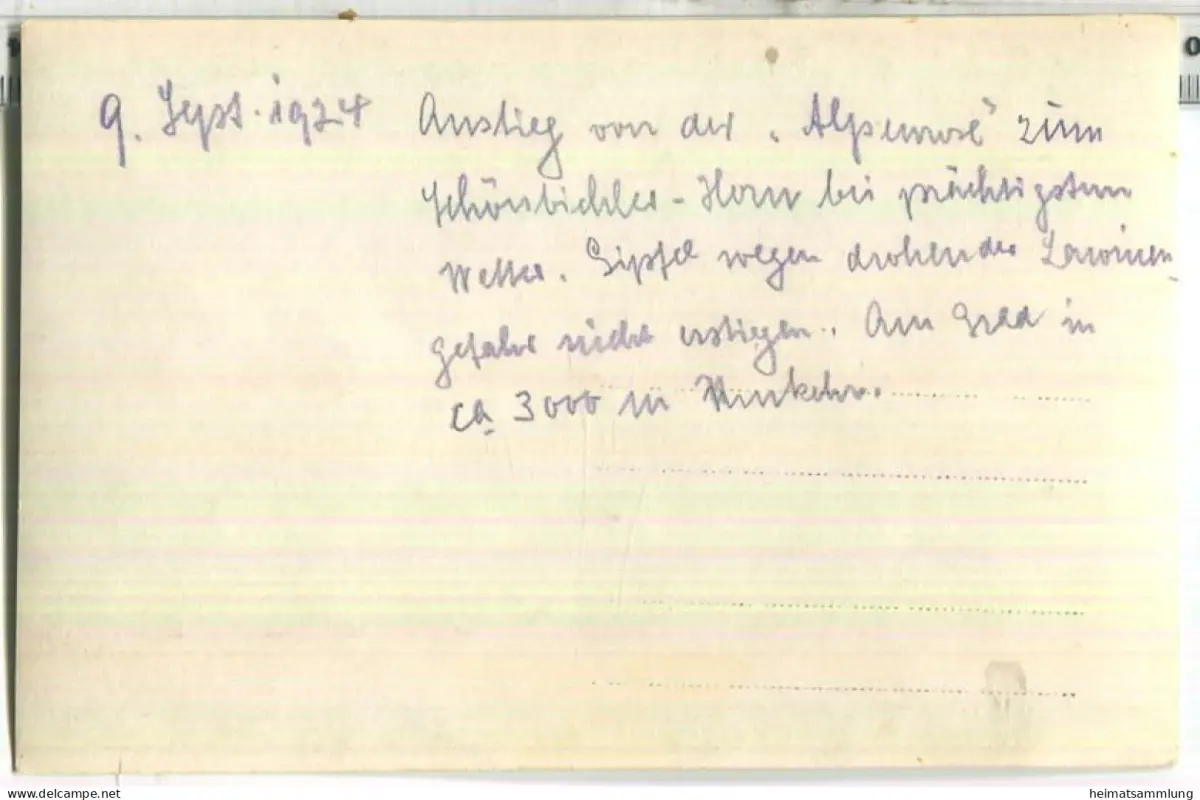 9. Sept. 1924 Anstieg von der „Alpenrose" zum
Schönbichler-Horn bei prächtigstem
Wetter. Gipfel wegen drohender Lawinen-
gefahr nicht erstiegen. Am Grad in
ca 3000 m Umkehr.
www.delcampe.net
heimatsammlung